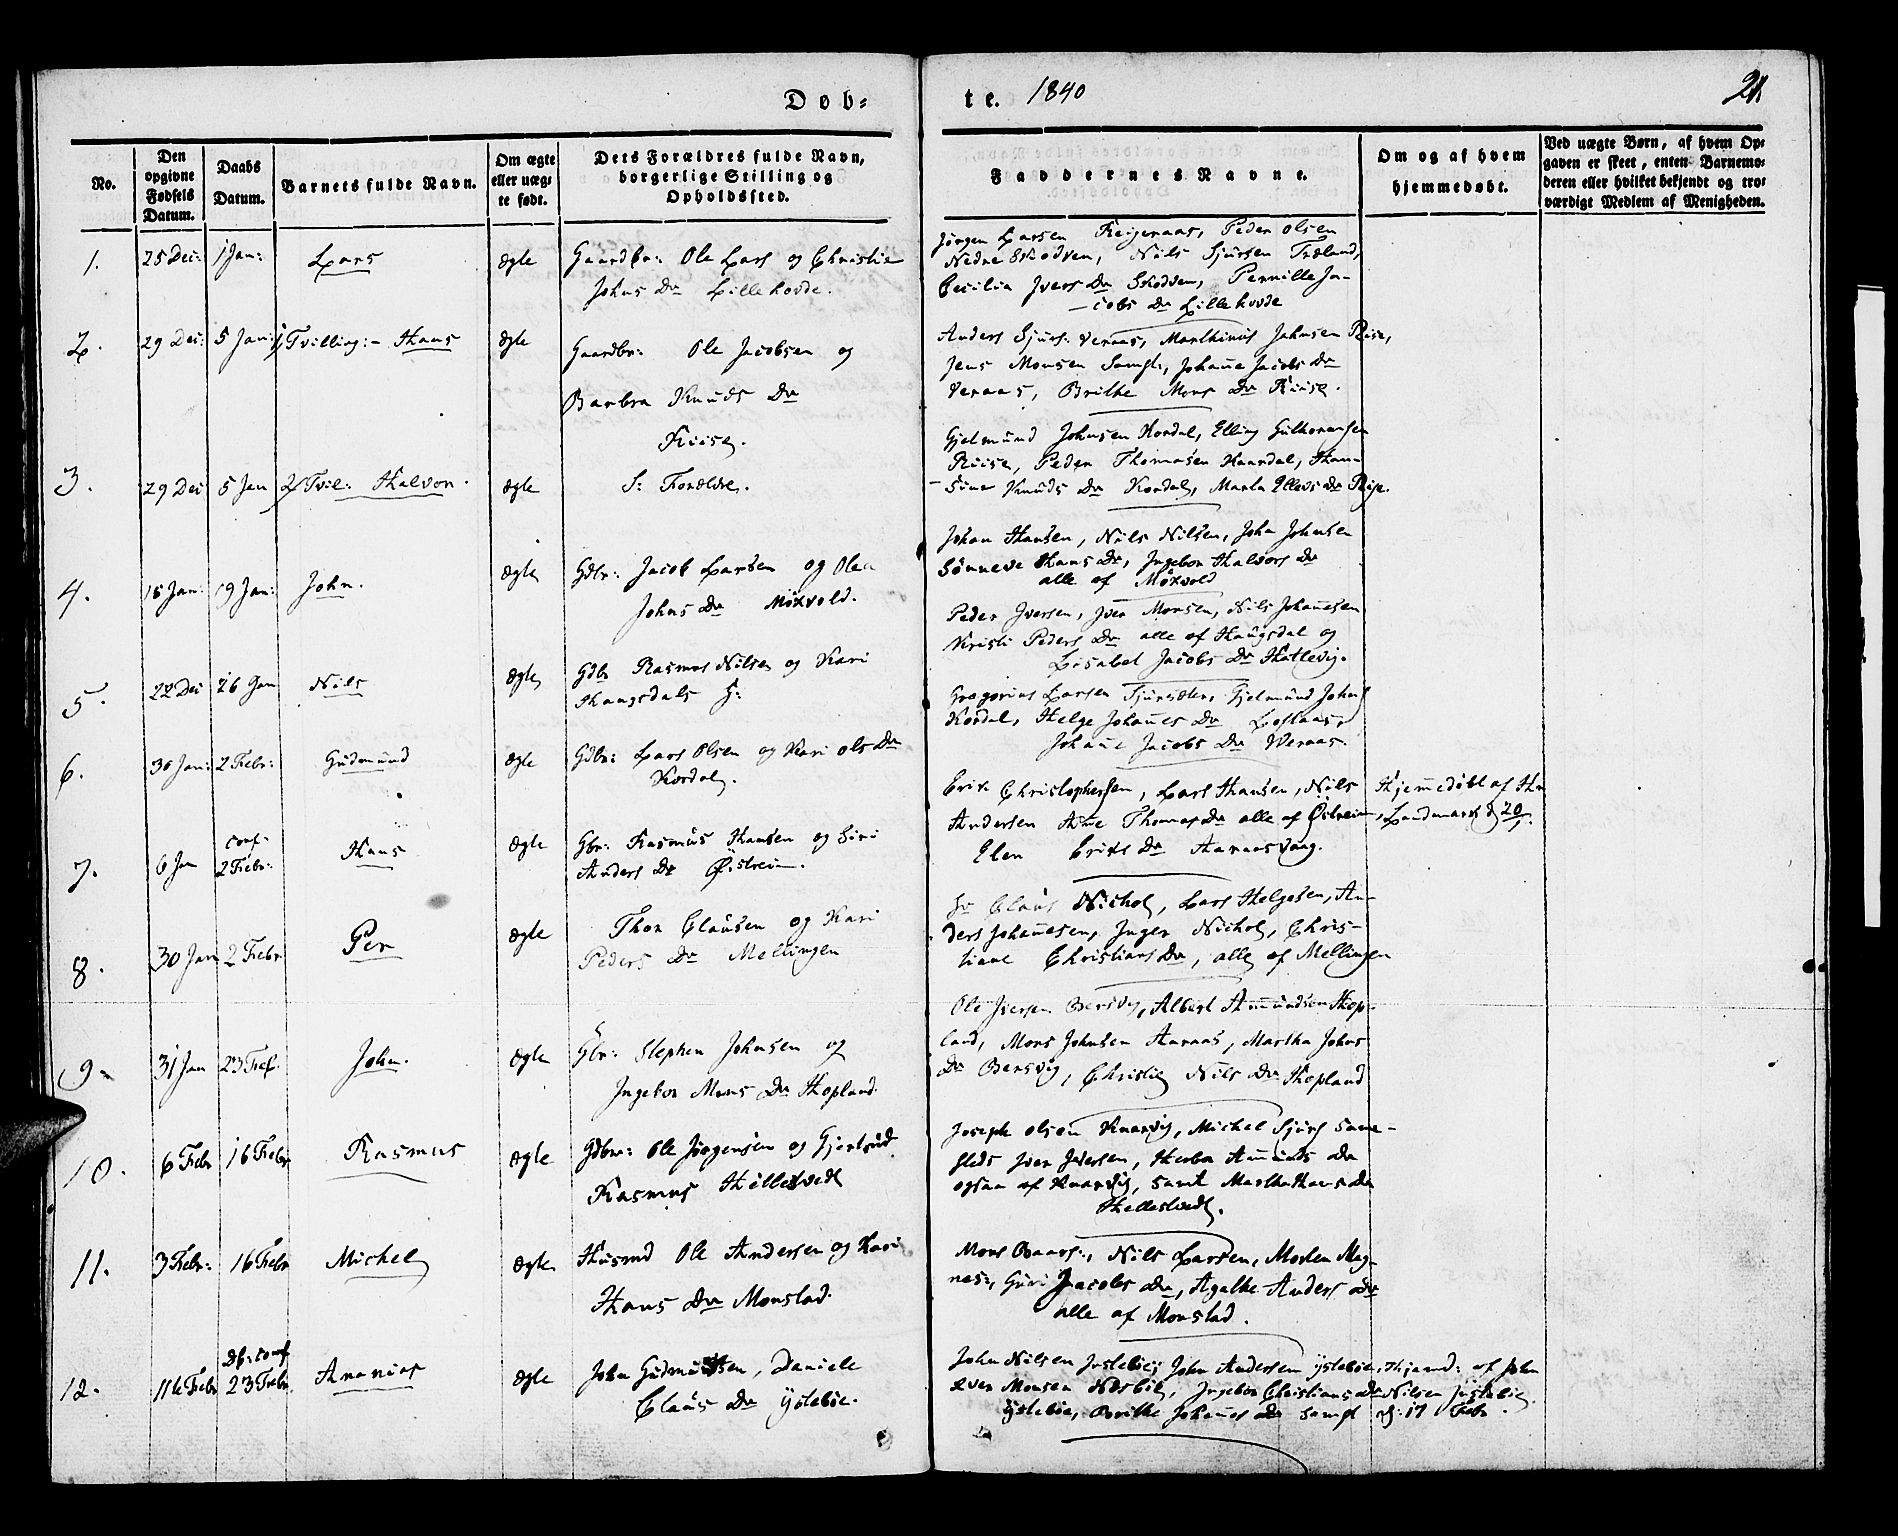 Døb= te. 1840 21
No.
Den opgivne Fødsels Datum.
Daabs Datum.
Barnets fulde Navn.
Om ægte eller uæg= te født.
Dets Forældres fulde Navn, borgerlige Stilling og Opholdssted.
Faddernes Navne.
Om og af hvem hjemmedøbt.
Ved uægte Børn, af hvem Op= gaven er skeet, enten Barnemo= deren eller hvilket bekjendt og tro= værdigt Medlem af Menigheden.
1. 25 Dec: 1 Jan: Lars Ægte
Gaardbr: Ole Lars og Christie
Johns Dr Lillehovde.
Jørgen Larsen Peder Olsen
Nedre Skodven, Nils Sjursen Træland,
Cecilia Ivers Dr Skodven, Pernille Ja-
cobs Dr Lillehovde
2. 29 Dec: 5 Jan: 1/ Tvilling:- Hans Ægte
Gaardbr: Ole Jacobsen og
Barbra Knuds Dr
Riise.
Anders Sjurs: Veraas, Marthinus Johnsen Riise,
Jens Monsen Samst:, Johanne Jacobs Dr
Veraas, Brithe Mons Dr Riise.
3. 29 Dec 5 Jan 2/ Tvil: Halvor. Ægte
S: Forældre.
Gjelmund Johnsen Kordal, Elling
Riise, Peder Thomasen Kaardal, Han-
sine Knuds Dr Kordal, Marta Ellevs Dr Riise.
4. 15 Jan: 19 Jan: John. Ægte
Gdbr: Jacob Larsen og Olea
Johns Dr Møxvold.
Johan Hansen, Nils Nilsen, John Johnsen
Sønneve Hans Dr, Ingebor Halvors Dr
alle af Møxvold
5. 22 Dec 26 Jan Nils Ægte
Gdbr Rasmus Nilsen og Kari
Haugsdals G:
Peder Iversen, Iver Monsen, Nils Johannesen
Kristi Peders Dr alle af Haugsdal og
Lisabet Jacobs Dr Hatlevig.
6. 30 Jan: 2 Febr: Gudmund Ægte
Gdbr: Lars Olsen og Kari Ols Dr
Kordal.
Gregorius Larsen Gjelmund Johns
Kordal, Helge Johannes Dr
Johanne Jacobs Dr Weraas.
7. 6 Jan conf:
2 Febr: Hans Ægte
Gbr: Rasmus Hansen og Siri
Anders Dr Øistrein.
Erik Christophersen, Lars Hansen, Nils
Andersen Anne Thomas Dr alle af Østreim,
Elen Eriks Dr Aaraasvaag.
Hjemmedøbt af Hr
Landmark d 20/1.
8. 30 Jan 2 Febr Per Ægte
Thor Clausen og Kari
Peders Dr Mellingen
Sr Claus Nichol, Lars Helgesen, An-
ders Johannesen, Inger Nichol, Chris-
tiane Christians Dr, alle af Mellingen
9. 31 Jan 23 Feb. John. Ægte
Gbr: Stephen Johnsen og
Ingebor Mons Dr Hopland.
Ole Iversen Bersvig, Albert Amundsen Hop-
land, Mons Johnsen Aaraas, Martha Johns
Dr Bersvig, Christie Nils Dr Hopland
10. 6 Febr 16 Febr Rasmus Ægte
Gdbr: Ole Jørgensen og Gjertrud
Rasmus Hillesvedt
Joseph Olsen Knarvig, Michel Sjurs Same-
steds Iver Iversen, Herbor Amunds Dr
ogsaa af Knarvig, samt Martha Hans Dr
Hellestvedt.
11. 3 Febr: 16 Febr Michel Ægte
Husmd Ole Andersen og Kari
Hans Dr Monstad.
Mons Baars:, Nils Larsen, Morten Mag-
nes:, Guri Jacobs Dr, Agathe Anders Dr
alle af Monstad.
12. 11te Febr Db: conf
23 Febr. Ananias Ægte
John Gudmundsen, Daniele
Claus Dr Ystebøe.
John Nilsen Ystebøe, John Andersen Ystebøe,
Iver Monsen Ingebor Christians Dr
Ystebøe, Brithe Johannes Dr samst
Hjemd: af John
Nilsen Ystebøe
d: 17 Febr.